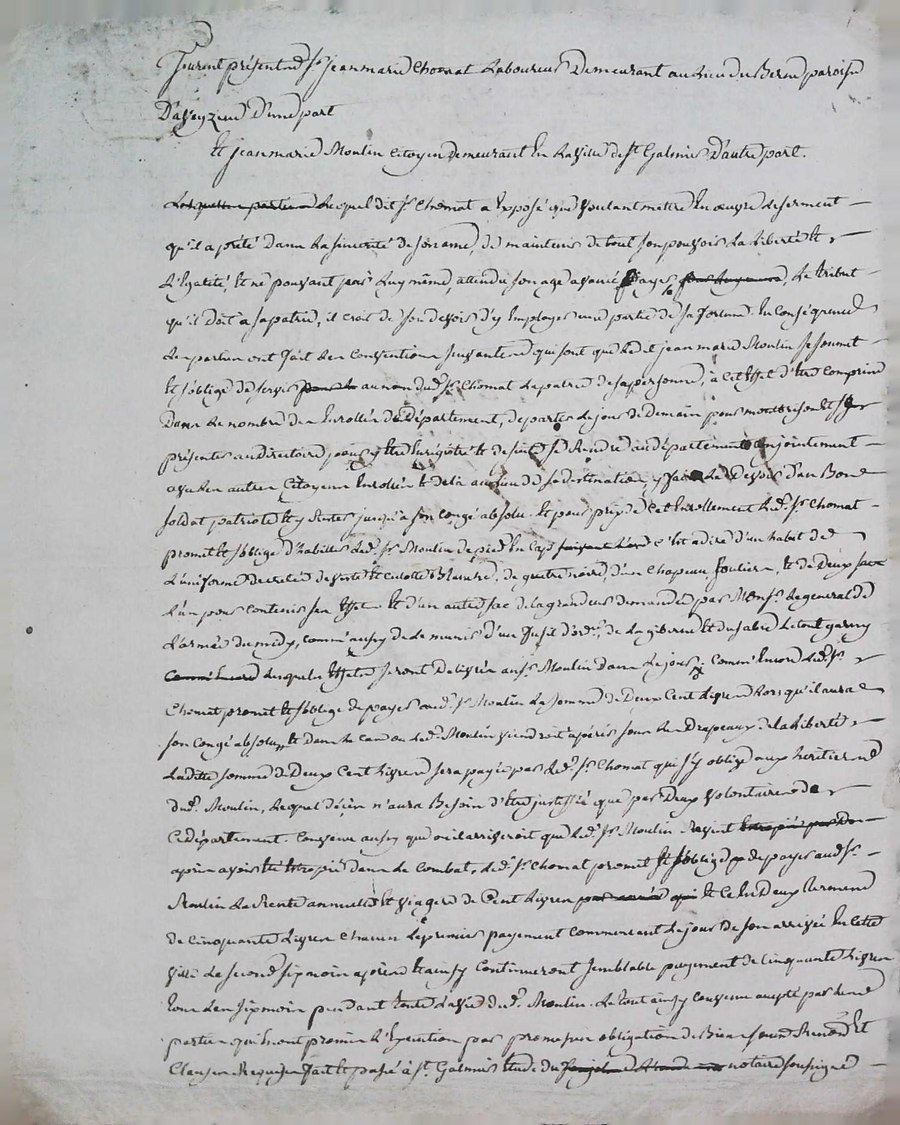 Furent présents Sr jeanmarie Chomat Laboureur Demeurant au Lieu du Berne paroise
D'aveyzieu D'une part
Et jeanmarie Moulin Citoyen demeurant En La ville de St Galmier D'autre part.
Lesquelles parties Lequel dit Sr Chomat a Exposé que voulant metre En oeuvre le serment
qu'il a prété dans La sincerité de son ame, de maintenir de tout son pouvoir La Liberté Et
L'Egalité Et ne pouvant par Luy même, attendu son age avancé payer, Le tribut
qu'il Doit a sa patrie, il croit de son devoir d'y Employer une partie de sa fortune. En Conséquence
Les parties ont fait Les Conventions suivantes qui sont que Ledit jean marie Moulin se soumet
Et s'oblige de servir pour le au nom dud. Sr Chomat La patrie de sa personne, à Cet Effet d'être Compris
Dans Le nombre des Enrollés du Département, de partir Le jour de Demain pour montbrison Et se
présenter au directoire, pour y être Enrégistré Et de suite se Rendre au département Conjointement
avec Les autres Citoyens Enrollés Et de là au Lieu de sa destination, y faire Le Devoir d'un Bon
soldat patriote Et y Rester jusqu'à son Congé absolu. Et pour prix de Cet Enrollement Led. Sr Chomat
promet Et s'oblige D'habiller Led. Sr Moulin de pied En Cap C'est adire d'un habit de
L'uniforme Decreté de veste Et culotte Blanche, de guetre noire, d'un Chapeau, souliers, Et de Deux sacs
L'un pour Contenir ses Effets Et d'un autre sac de La grandeur demandée par Monsr Le general de
L'armée du midy, comme aussy de Le munir d'un fusil d'ord.re, de La giberne Et du sabre Le tout garny
Comme Encore Lesquels Effets seront Delivrés au Sr Moulin dans Le jour; Comme Encore Led. Sr
Chomat promet Et s'oblige de payer aud. Sr Moulin La somme de Deux Cent Livres Lors qu'il aura
son Congé absolu, Et dans Le Cas ou Led. Moulin viendroit a périr sous Les Drapeaux de la Liberté
Ladite somme de Deux Cent Livres sera payée par Led. Sr Chomat qui s'y oblige aux heritiers
dud. Moulin, Lequel décès n'aura Besoin d'être justifié que par Deux volontaires de
Ce département. Convenu aussy que ou il arriveroit que Led. Sr Moulin Revint Estropié par Des
après avoir été Estropié dans Le Combat, Led. Sr Chomat promet Et s'oblige de payer aud. Sr
Moulin La Rente annuelle Et viagere de Cent Livres par année qui Et Ce En Deux termes
de Cinquante Livres Chacun Le premier payement Commencant Le jour de son arrivée En Cette
ville Le second six mois après Et ainsy Continueront semblable payement de Cinquante Livres
tous Les six mois pendant toute La vie dud. Moulin. Le tout ainsy Convenu accepté par Les
parties qui En ont promis L'Execution par promesse obligation de Biens sous Renon. Et
Clauses Requises fait Et passé à St Galmier Etude du notaire soussigné